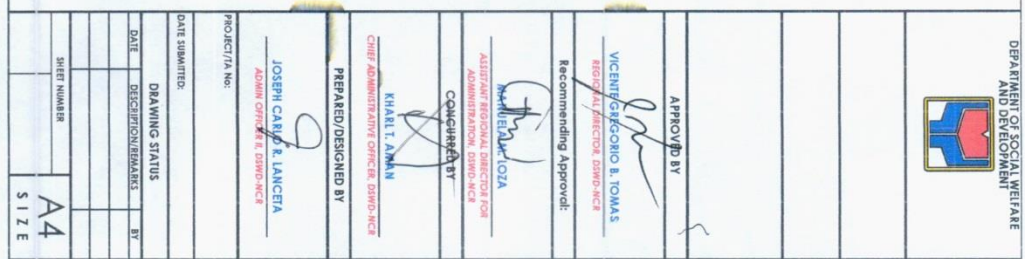 DEPARTMENT OF SOCIAL WELFARE
AND DEVELOPMENT
APPROVED BY
VICENTE GREGORIO B. TOMAS
REGIONAL DIRECTOR, DSWD-NCR
Recommending Approval:
MANUELA M. LOZA
ASSISTANT REGIONAL DIRECTOR FOR
ADMINISTRATION, DSWD-NCR
CONCURRED BY
KHARL T. AMAN
CHIEF ADMINISTRATIVE OFFICER, DSWD-NCR
PREPARED/DESIGNED BY
JOSEPH CARLO R. LANCETA
ADMIN OFFICER II, DSWD-NCR
PROJECT/TA No:
DATE SUBMITTED:
DRAWING STATUS
DATE DESCRIPTION/REMARKS BY
SHEET NUMBER
A4
SIZE